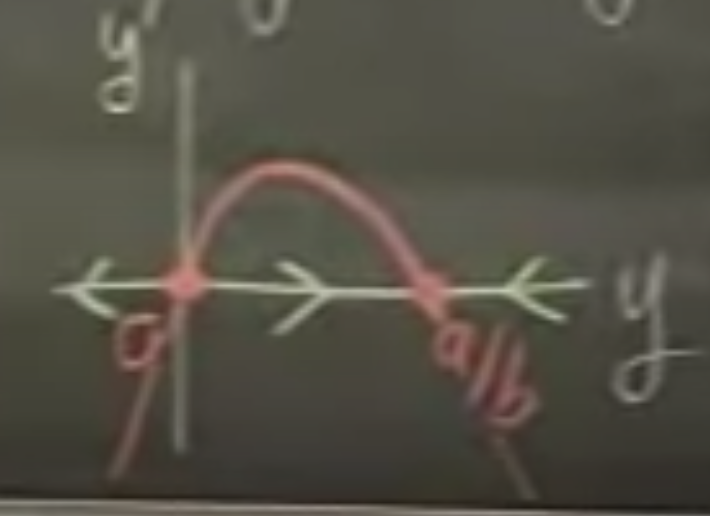 y'
0
a/b
y